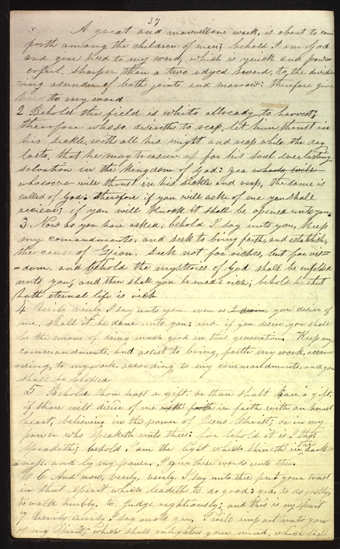 37
A great and marvellous work, is about to come
forth among the children of men; behold I am God
and give heed to my word, which is quick and pow-
erful, sharper than a two edged sword, to the divid-
ing asunder of both joints and marrow: therefore give
heed to my word
2 Behold the field is white already to harvest;
therefore whoso desireth to reap, let him thrust in
his sickle, with all his might and reap while the day
lasts, that he may treasure up for his soul everlasting
salvation in the Kingdom of God: yea
whosoever will thrust in his sickle and reap, the same is
called of God; therefore if you will ask of me you shall
receive; if you will knock it shall be opened unto you
3 Now as you have asked, behold I say unto you, keep
my commandments, and seek to bring forth and establish,
the cause of Zion. Seek not for riches, but for wis=
dom, and behold the mysteries of God shall be unfolded
unto you, and then shall you be made rich; behold he that
hath eternal life is rich
4 Verily Verily I say unto you even as you desire of
me, shall it be done unto you: and if you desire, you shall
be the means of doing much good in this generation. Keep my
commandments, and assist to bring, forth my work, accor
ding, to my commandments, and you
shall be blessed
5 Behold thou hast a gift, or thou shalt have a gift,
if thou wilt desire of me in faith with an honest
heart, believing in the power of Jesus Christ, or in my
power who speaketh unto thee: for behold it is I that
speaketh; behold I am the light which shineth in dark
ness and by my power I give these words unto thee
6 And now, verily, verily I say unto thee put your trust
in that spirit which leadeth to do good: yea, to do justly,
to walk humbly, to judge righteously; and this is my spirit
7 Verily Verily I say unto you, I will impart unto you
of my spirit, which shall enlighten your mind, which shall